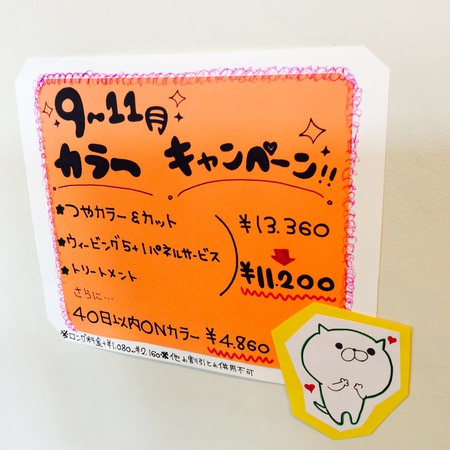 9〜11月
カラー キャンペーン!!
★つやカラー&カット ¥13.360
★ウィービング5+1パネルサービス
★トリートメント ¥11.200
さらに…
40日以内ONカラー ¥4.860
※ロング料金+¥1.080〜¥2.160 ※他の割引との併用不可